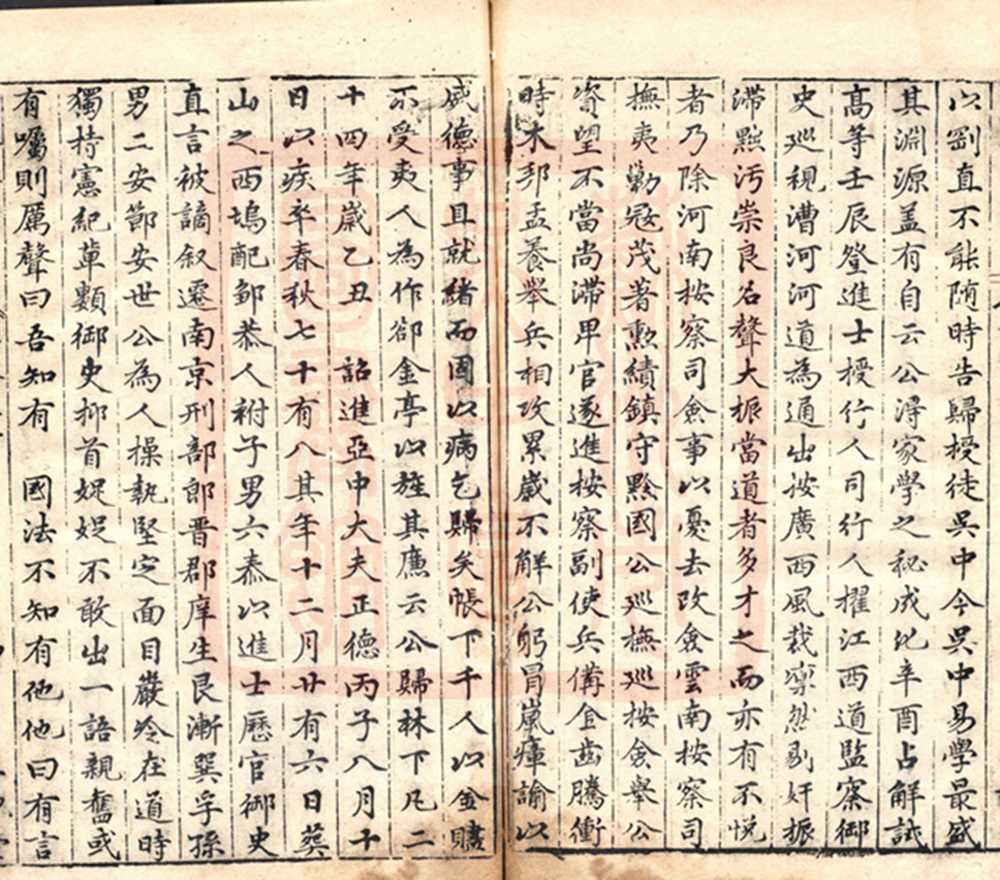 以劉直不能随時告歸授徒吳中今吳中易學最盛
其淵源盖有自云公淂家學之秘成化辛酉占解試
髙等壬辰登進士授行人司行人擢江西道監察御
史巡視漕河河道為通出按廣西風裁凛然剔奸振
滯黜汚崇良名聲大振當道者多才之而亦有不悅
者乃除河南按察司僉事以憂去改僉雲南按察司
撫夷勦冦茂著勲績鎮守黔國公巡撫巡按僉舉公
資望不當尚滯卑官遂進按察副使兵備金齒騰衝
時木邦孟養舉兵相攻累歲不解公躬冒嵐瘴諭以
威德事且就緒而國以病乞歸矣帳下千人以金贐
不受夷人為作卻金亭以旌其廉云公歸林下凡二
十四年歲乙丑 詔進亞中大夫正德丙子八月十
日以疾卒春秋七十有八其年十二月廿有六日葬
山之西塢配邹恭人祔子男六泰以進士歷官御史
直言被謫叙遷南京刑部郎晋郡庠生艮漸巽孚孫
男二安節安世公為人操執堅定面目嚴冷在道時
獨持憲紀軰數御史抑首娖娖不敢出一語親舊或
有囑則厲聲曰吾知有 國法不知有他他曰有言